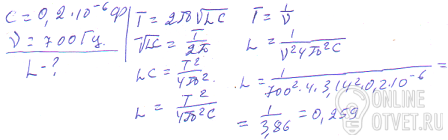 C = 0,2·10⁻⁶ Ф
ν = 700 Гц.
L - ?
T = 2π√LC
√LC = T/2π
LC = T²/4π².
L = T²/4π²C
T = 1/ν
L = 1/ν²4π²C
L = 1/700²·4·3,14²·0,2·10⁻⁶ =
= 1/3,86 = 0,259
ONLINE
OTVET.RU